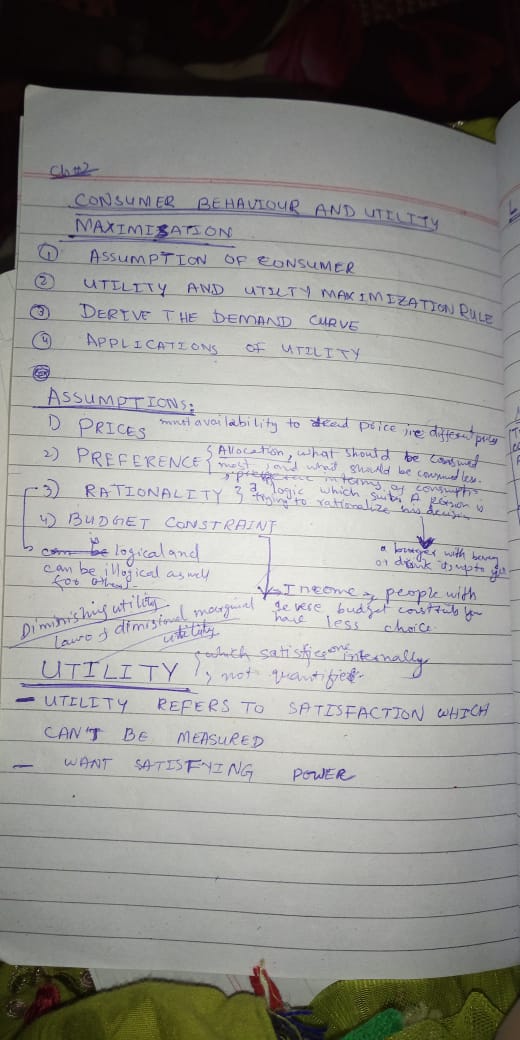 Ch #2
CONSUMER BEHAVIOUR AND UTILITY
MAXIMISATION
① ASSUMPTION OF CONSUMER
② UTILITY AND UTILTY MAXIMIZATION RULE
③ DERIVE THE DEMAND CURVE
④ APPLICATIONS OF UTILITY
ASSUMPTIONS:
1) PRICES availability to price ie different prices
2) PREFERENCE { Allocation, what should be consumed
most, and what should be consumed less.
in terms of
3) RATIONALITY } logic which suits A person is
trying to rationalize his decision
4) BUDGET CONSTRAINT
is
can be logical and
can be illogical as well
for others
a burger with
or drink its upto you
Income, people with
severe budget you
have less choice.
Diminishing utility
law of marginal
utility
UTILITY { which satisfies one internally
, not
- UTILITY REFERS TO SATISFACTION WHICH
CAN'T BE MEASURED
- WANT SATISFYING POWER